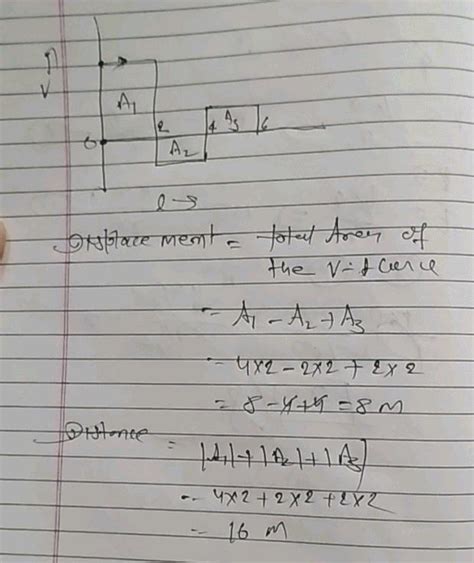 V
A1
0
2
A2
4
A3
6
Displacement = total Area of
the V-t curve
= A1 - A2 + A3
= 4×2 - 2×2 + 2×2
= 8 - 4 + 4 = 8 M
Distance
= |A1| + |A2| + |A3|
= 4×2 + 2×2 + 2×2
= 16 M